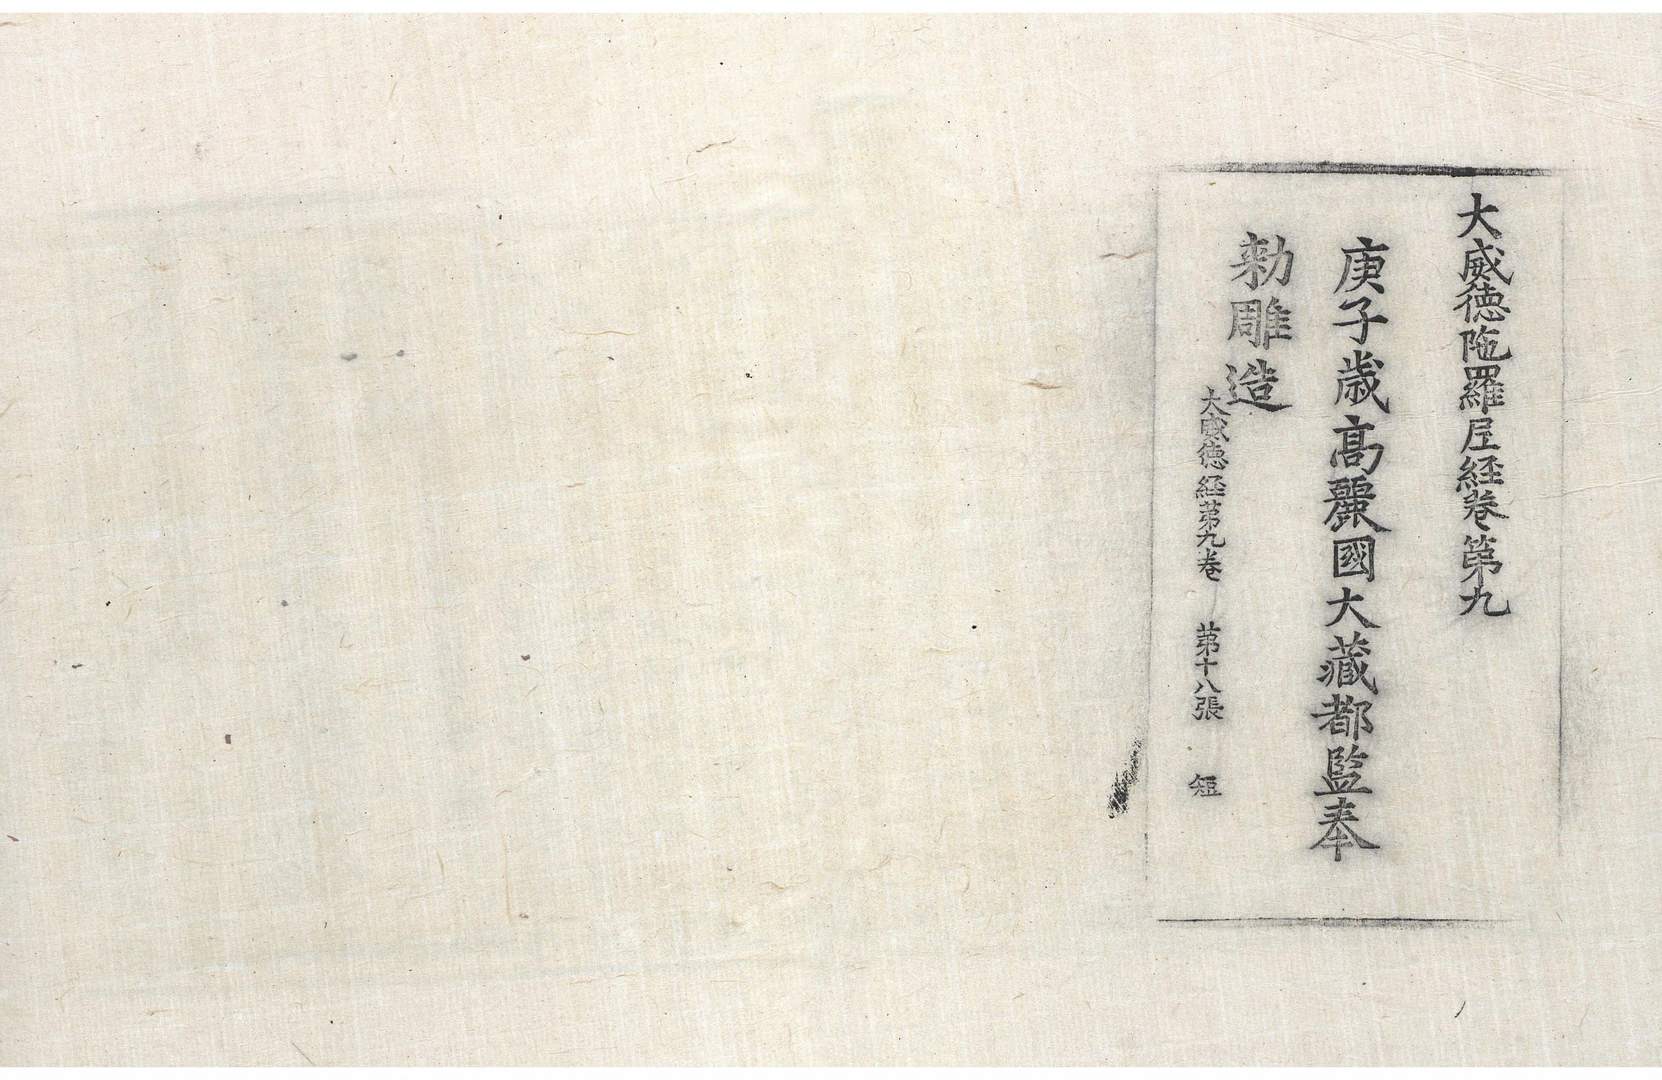 大威德陁羅𡰱経卷第九
庚子歲高麗國大藏都監奉
勑雕造
大威德経第九卷　第十八張　短